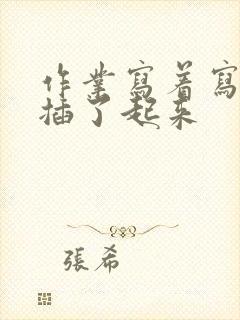 作業寫着寫
插了起來
張希